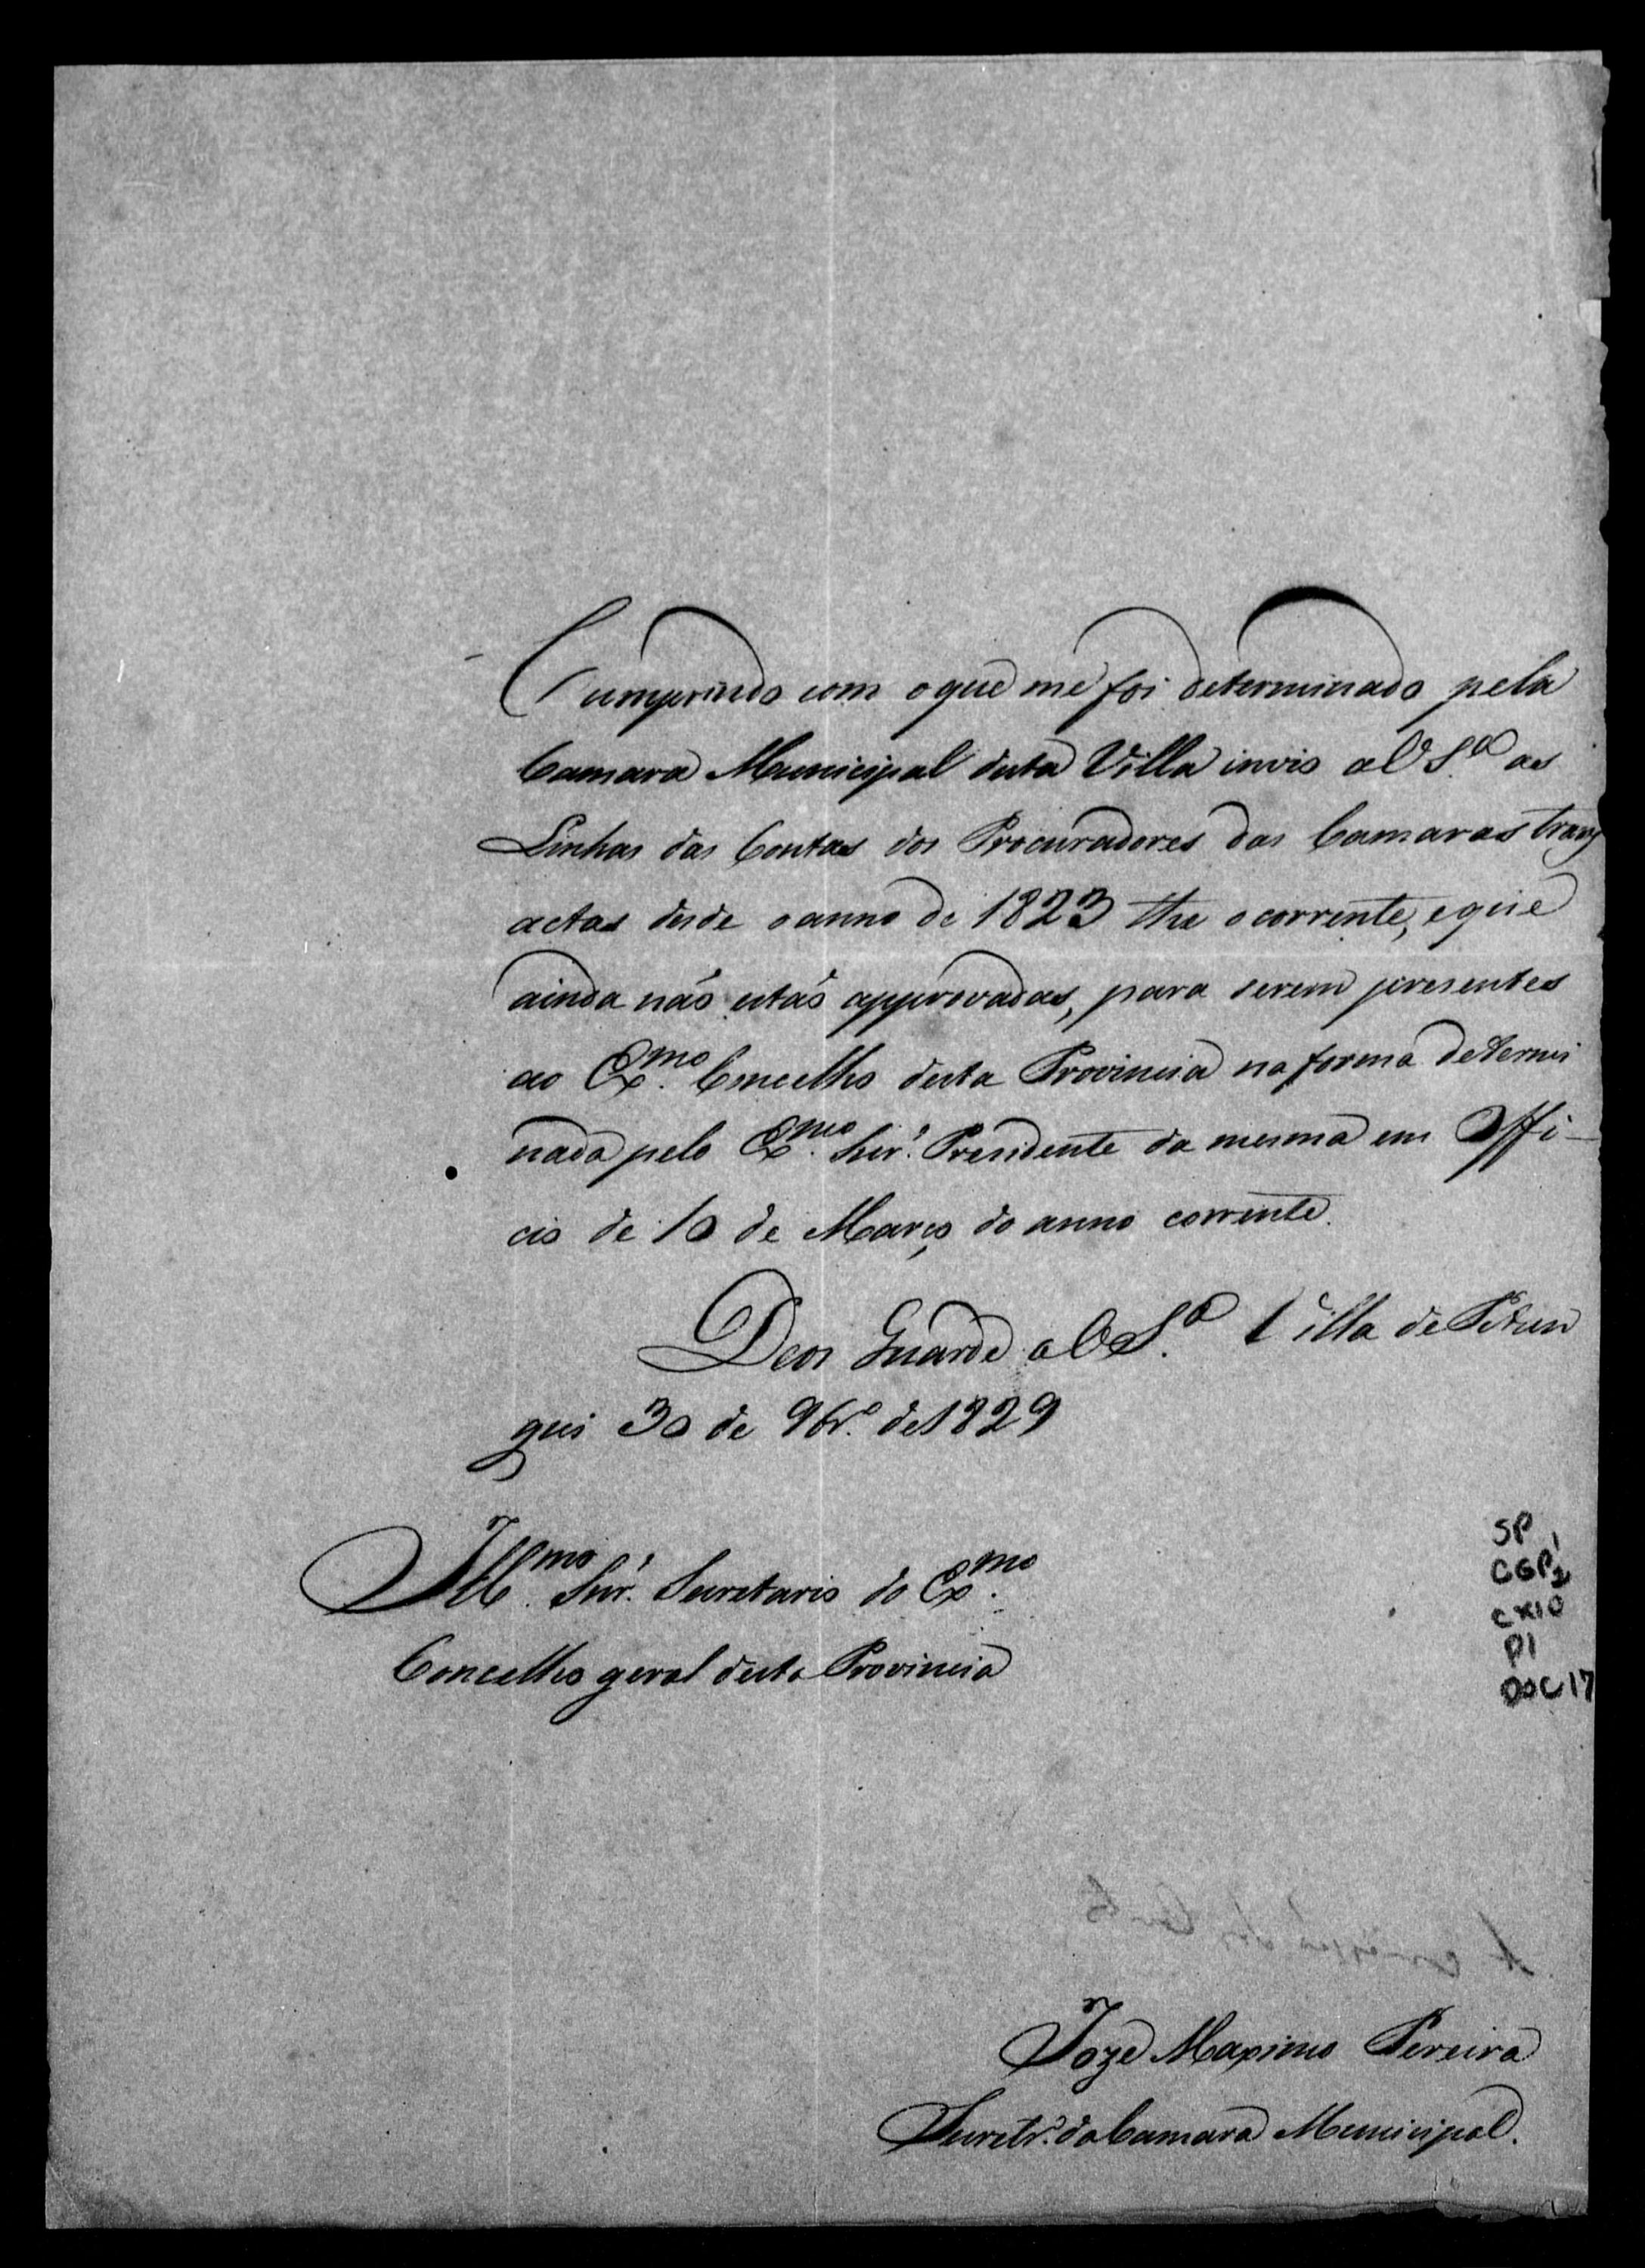 Cumprindo com oque me foi determinado pela
Camara Municipal desta Villa invio a V S.ª as
Linhas das Contas dos Procuradores das Camaras trans
actas desde o anno de 1823 the o corrente, e que
ainda não estão approvadas, para serem presentes
ao Ex.mo Concelho desta Provincia na forma determi
nada pelo Ex.mo Snr. Presidente da mesma em Offi-
cio de 10 de Março do anno corrente.
Deos Guarde a V S.ª Villa de Pitan
gui 30 de 9br.º de 1829
Ill.mo Snr. Secretario do Ex.mo
Concelho geral desta Provincia
SP
CGP1
2
CX10
P1
DOC17
Joze Maximo Pereira
Secretr.º da Camara Municipal.